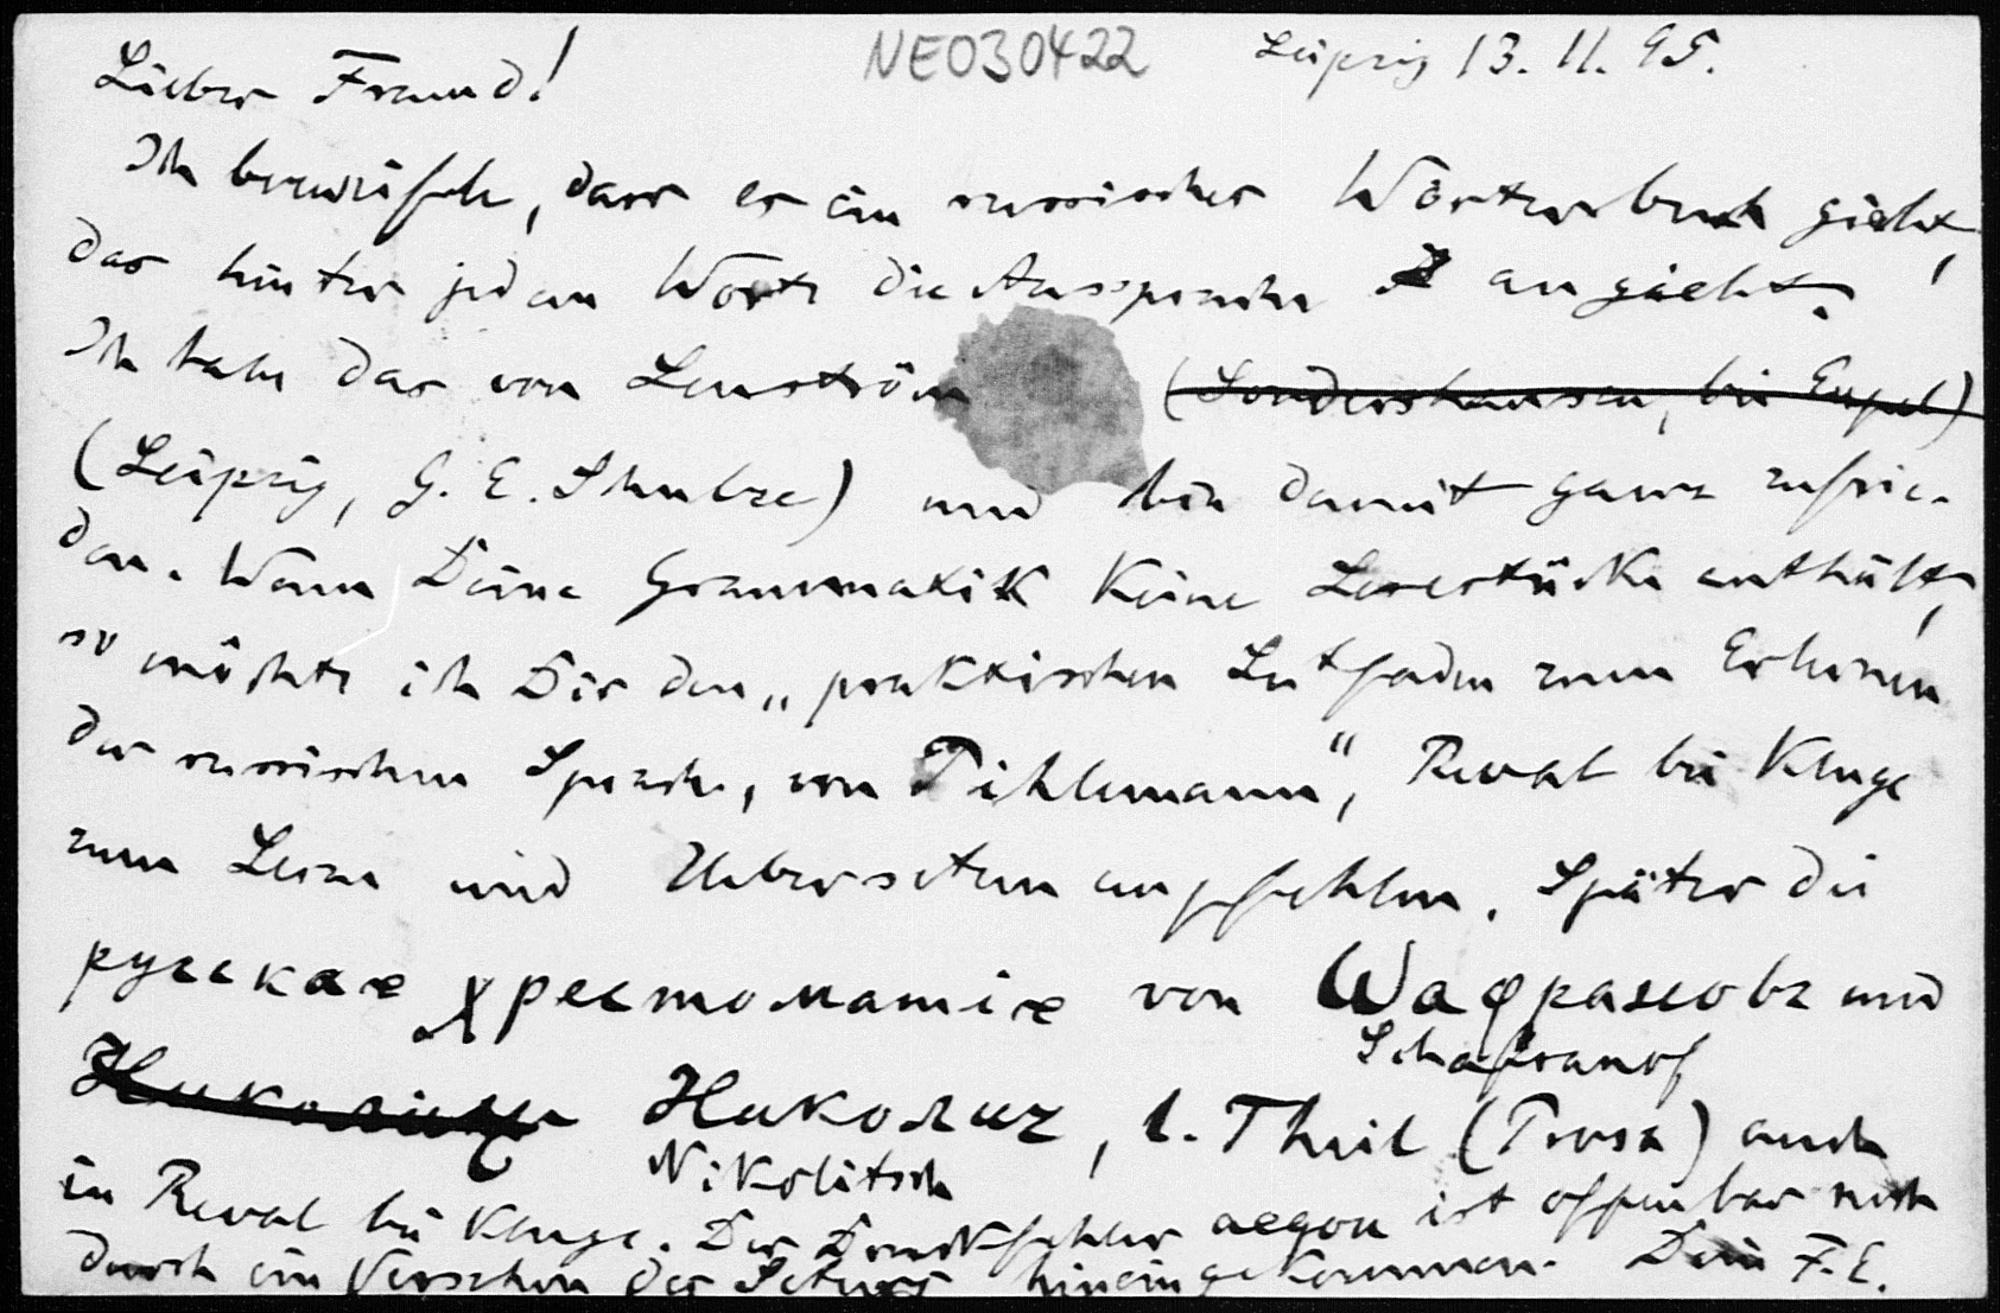 NE030422 Leipzig 13. 11. 95.
Lieber Freund!
Ich bezweifele, dass es ein russisches Wörterbuch giebt,
das hinter jedem Worte die Aussprache angiebt.
Ich habe das von Lenström (Sondershausen, bei Eupel)
(Leipzig, G. E. Schulze) und bin damit ganz zufrie-
den. Wenn Deine Grammatik keine Lesestücke enthält,
so möchte ich Dir den „praktischen Leitfaden zum Erlernen
der russischen Sprache, von Pihlemann“, Reval bei Kluge
zum Lesen und Uebersetzen empfehlen. Später die
русская хрестоматія von Шафрановъ und
Schafranof
Николичъ Николичъ, 1. Theil (Prosa) auch
Nikolitsch
in Reval bei Kluge. Der Druckfehler aegon ist offenbar noch
durch ein Versehen des Setzers hineingekommen. Dein F. E.